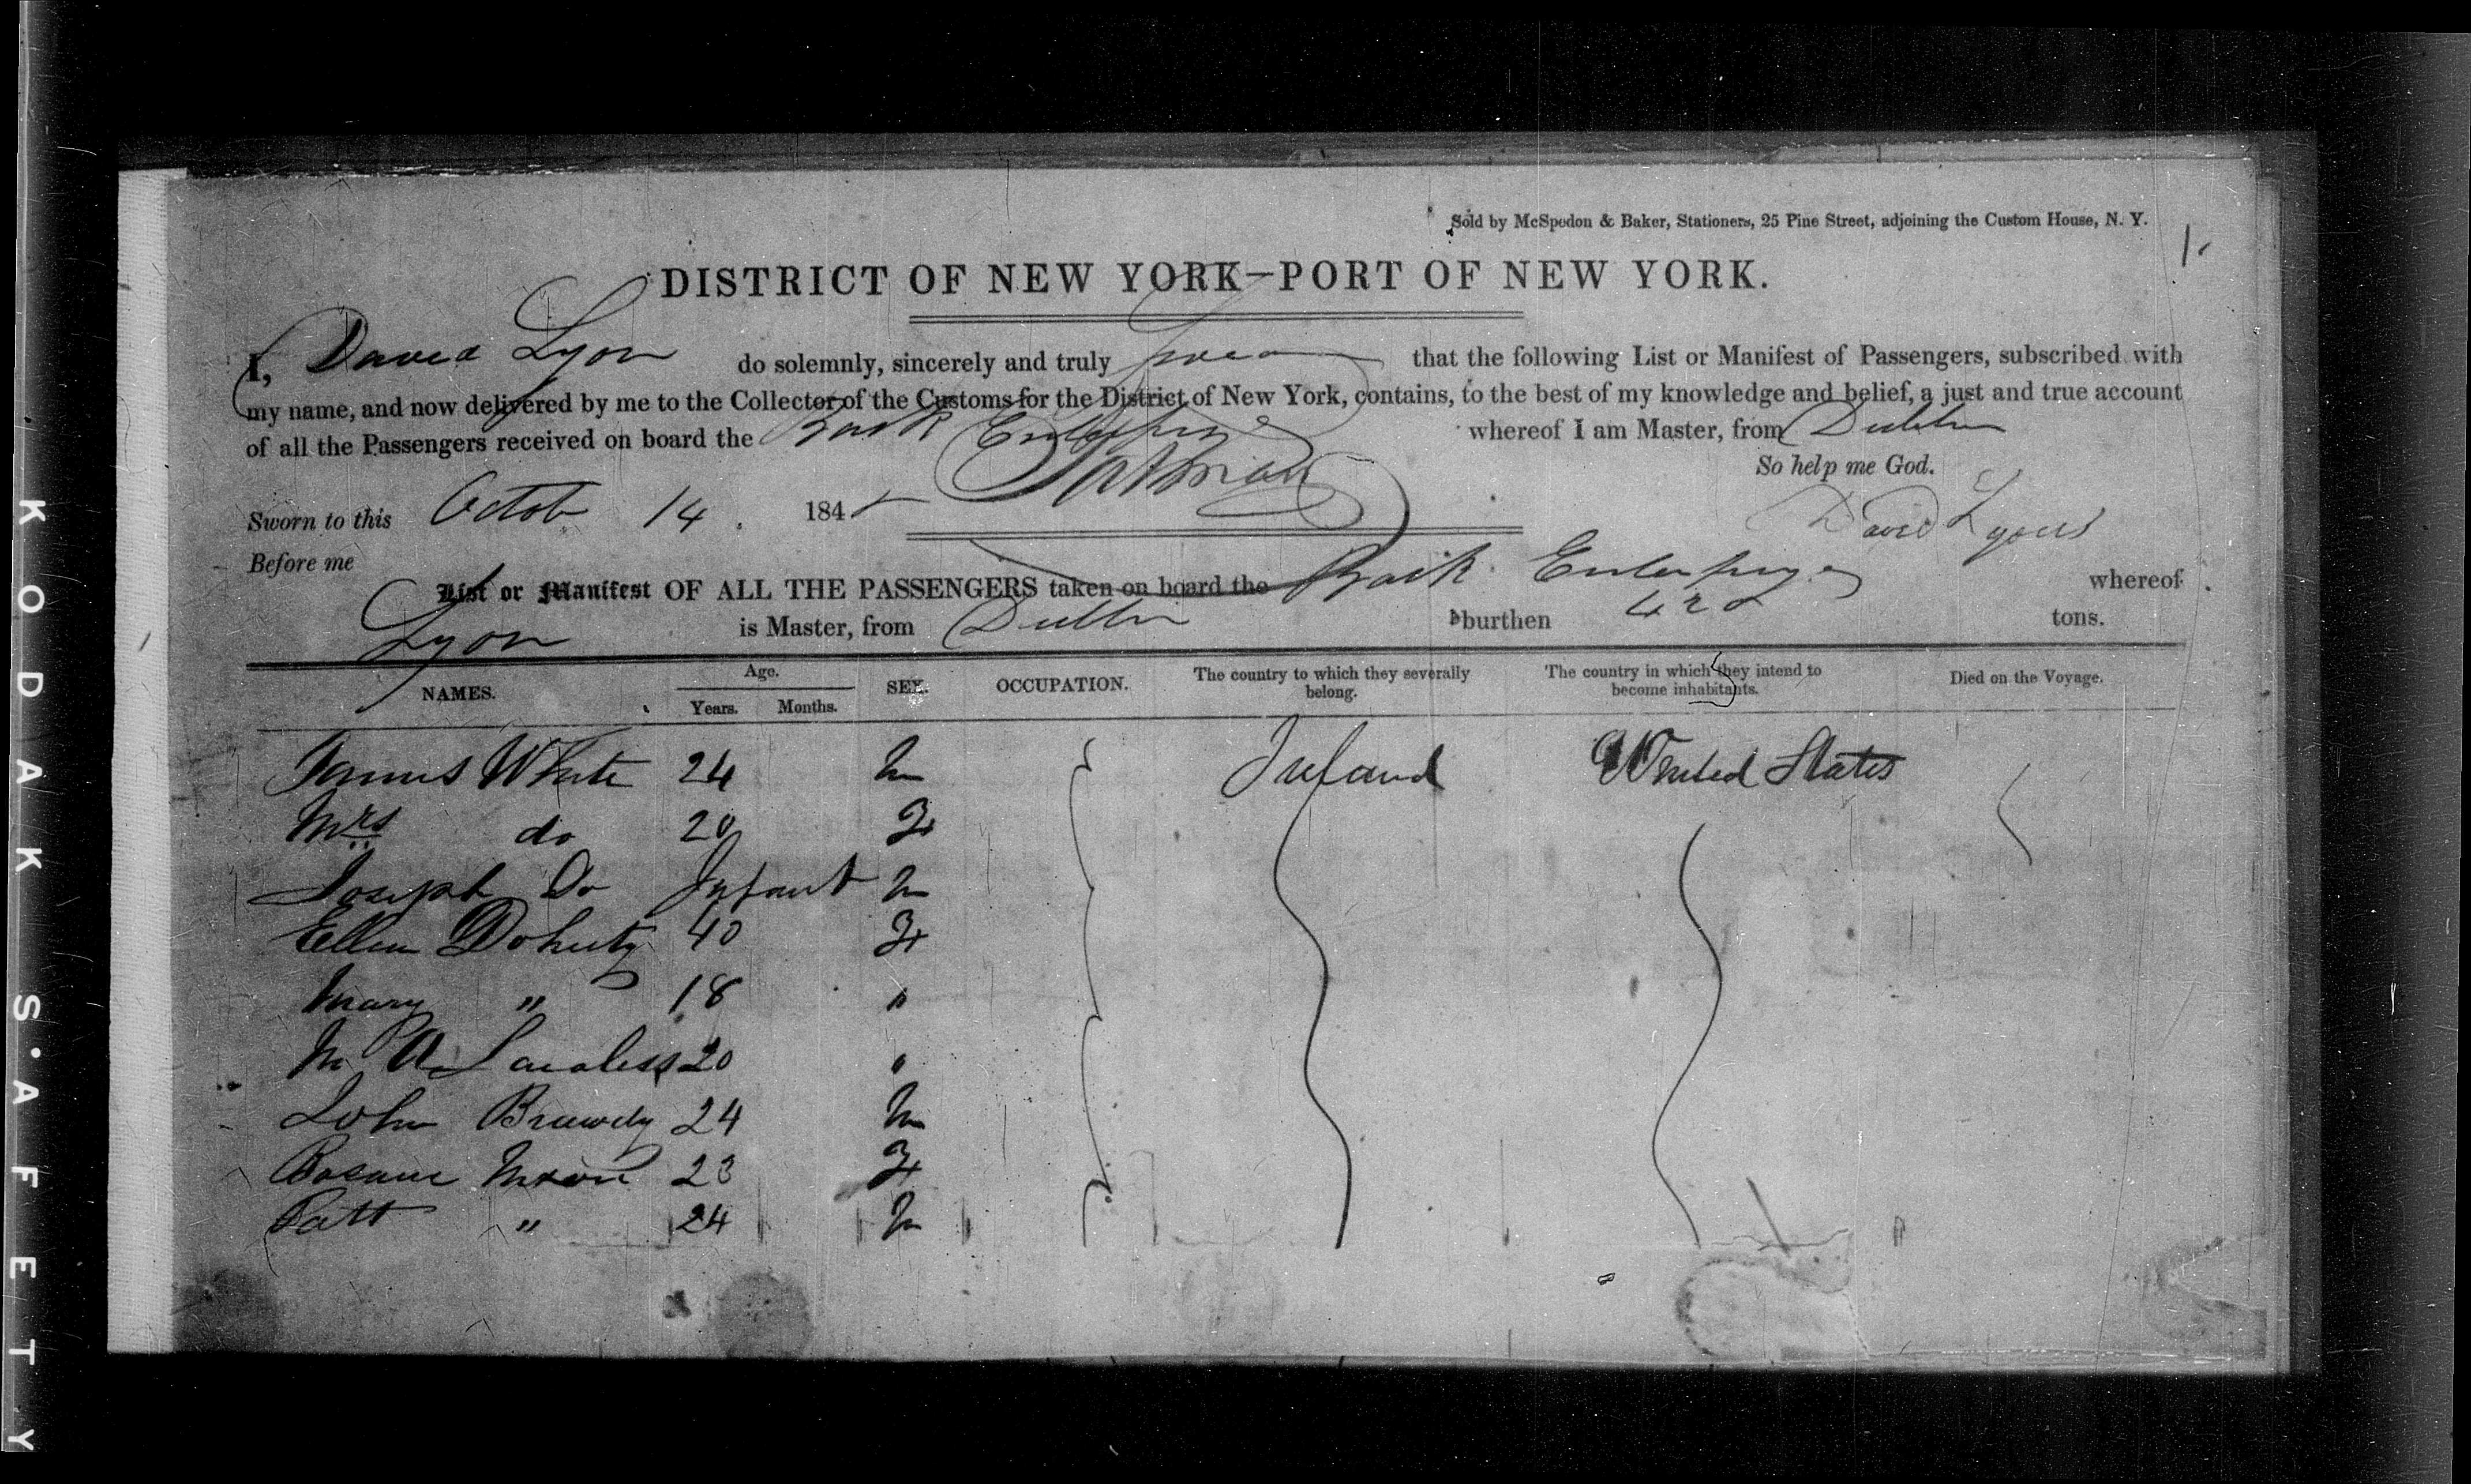 Sold by McSpedon & Baker, Stationers, 25 Pine Street, adjoining the Custom House, N. Y.
1.
DISTRICT OF NEW YORK—PORT OF NEW YORK.
I, David Lyon do solemnly, sincerely and truly swear that the following List or Manifest of Passengers, subscribed with
my name, and now delivered by me to the Collector of the Customs for the District of New York, contains, to the best of my knowledge and belief, a just and true account
of all the Passengers received on board the Bark Enterprize whereof I am Master, from Dublin
So help me God.
Sworn to this Octob 14. 184
David Lyons
Before me
List or Manifest OF ALL THE PASSENGERS taken on board the Bark Enterprize whereof
Lyon is Master, from Dublin burthen tons.
NAMES. Age. Years. Months. SEX. OCCUPATION. The country to which they severally belong. The country in which they intend to become inhabitants. Died on the Voyage.
James White 24 M Ireland United States
Mrs do 20 F
Joseph Do Infant M
Ellen Doherty 40 F
Mary " 18 "
M A Lawless 20 "
John 24 M
23 F
Patt " 24 M
KODAK S·A F E T Y